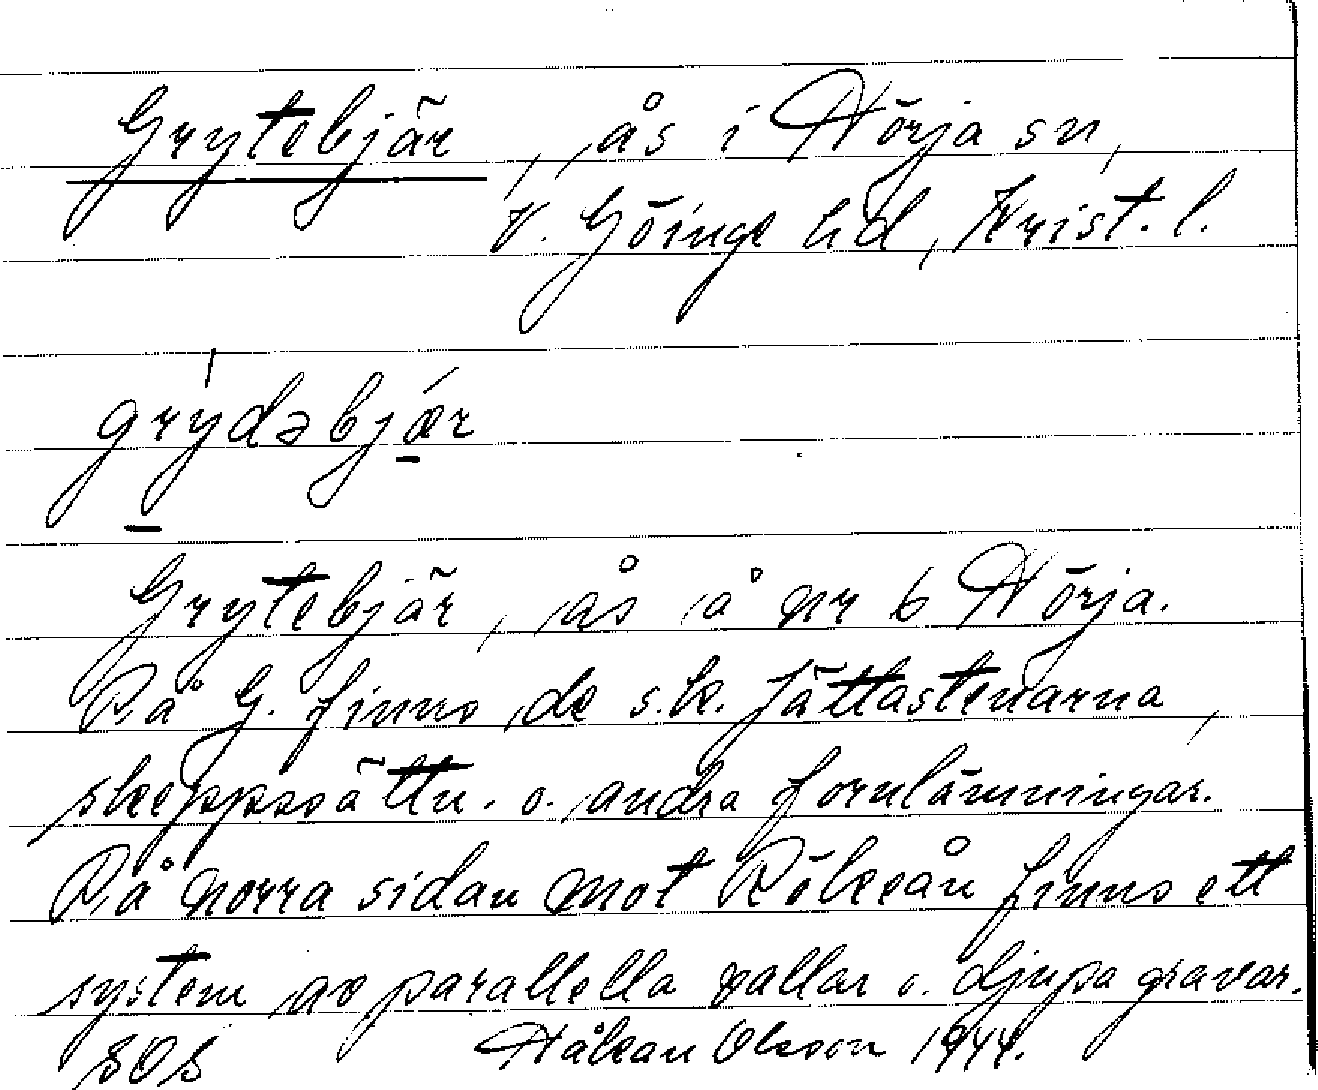 Grytebjär, ås i Nörja sn,
V. Göinge hd, Krist. l.
grýdəbjǽr
Grytebjär, ås å nr 6 Nörja.
På G. finns de s.k. Jättastenarna,
skeppssättn. o. andra fornlämningar.
På norra sidan mot Rökeån finns ett
system av parallella vallar o. djupa gravar.
SOS Håkan Olsson 1944.